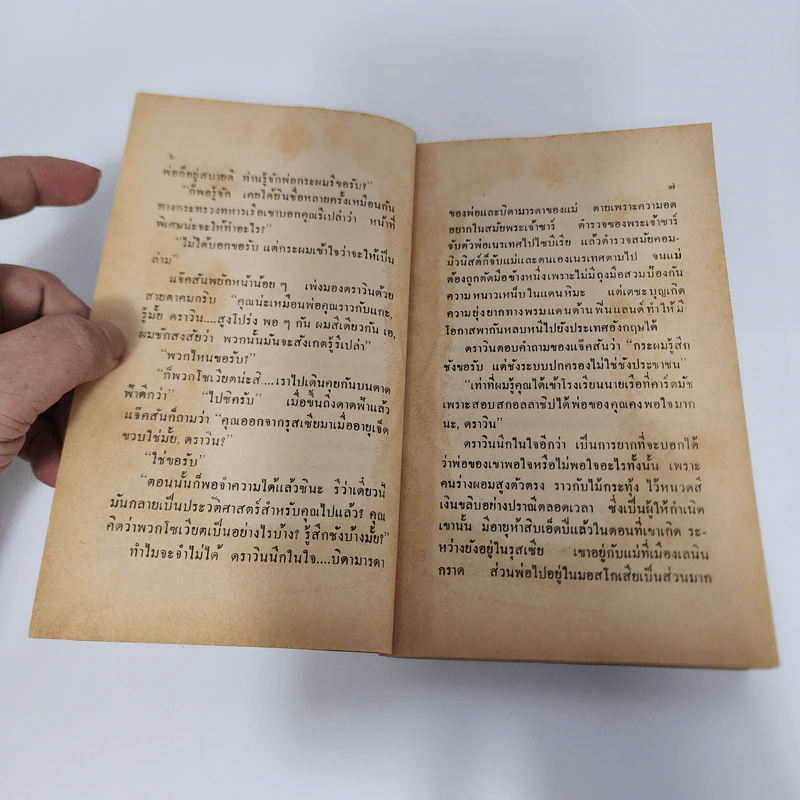 ๖
พ่อก็อยู่สบายดี ท่านรู้จักพ่อกระผมรึขอรับ?”
“ก็พอรู้จัก เคยได้ยินชื่อหลายครั้งเหมือนกัน
ทางกระทรวงทหารเรือเขาบอกคุณรึเปล่าว่า หน้าที่
พิเศษน่ะจะให้ทำอะไร?”
“ไม่ได้บอกขอรับ แต่กระผมเข้าใจว่าจะให้เป็น
ล่าม”
แจ๊คสันพยักหน้าน้อย ๆ เพ่งมองดราวินด้วย
สายตาคมกริบ “คุณน่ะเหมือนพ่อคุณราวกับแกะ,
รู้มั้ย ดราวิน....สูงโปร่ง พอ ๆ กัน ผมสีเดียวกัน เอ,
ผมชักสงสัยว่า พวกนั้นมันจะสังเกตรู้รึเปล่า”
“พวกไหนขอรับ?”
“ก็พวกโซเวียตน่ะสิ....เราไปเดินคุยกันบนดาด
ฟ้าดีกว่า” “ไปซิครับ” เมื่อขึ้นถึงดาดฟ้าแล้ว
แจ๊คสันก็ถามว่า “คุณออกจากรุสเซียมาเมื่ออายุเจ็ด
ขวบใช่มั้ย, ดราวิน?”
“ใช่ขอรับ”
“ตอนนั้นก็พอจำความได้แล้วซินะ รึว่าเดี๋ยวนี้
มันกลายเป็นประวัติศาสตร์สำหรับคุณไปแล้ว? คุณ
คิดว่าพวกโซเวียตเป็นอย่างไรบ้าง? รู้สึกชังบ้างมั้ย?”
ทำไมจะจำไม่ได้ ดราวินนึกในใจ....บิดามารดา
๗
ของพ่อและบิดามารดาของแม่ ตายเพราะความอด
อยากในสมัยพระเจ้าซาร์ ตำรวจของพระเจ้าซาร์
จับตัวพ่อเนรเทศไปไซบีเรีย แล้วตำรวจสมัยคอม-
มิวนิสต์ก็จับแม่และตนเองเนรเทศตามไป จนแม่
ต้องถูกตัดมือข้างหนึ่งเพราะไม่มีถุงมือสวมป้องกัน
ความหนาวเหน็บในแดนหิมะ แต่เดชะบุญเกิด
ความยุ่งยากทางพรมแดนด้านฟินแลนด์ทำให้มี
โอกาสพากันหลบหนีไปยังประเทศอังกฤษได้
ดราวินตอบคำถามของแจ๊คสันว่า “กระผมรู้สึก
ชังขอรับ แต่ชังระบบปกครองไม่ใช่ชังประชาชน”
“เท่าที่ผมรู้คุณได้เข้าโรงเรียนนายเรือที่ดาร์ตมัช
เพราะสอบสกอลลาชิปได้พ่อของคุณคงพอใจมาก
นะ, ดราวิน”
ดราวินนึกในใจอีกว่า เป็นการยากที่จะบอกได้
ว่าพ่อของเขาพอใจหรือไม่พอใจอะไรทั้งนั้น เพราะ
คนร่างผอมสูงตัวตรง ราวกับไม้กระทุ้ง ไว้หนวดสี
เงินขลิบอย่างปราณีตตลอดเวลา ซึ่งเป็นผู้ให้กำเนิด
เขานั้น มีอายุห้าสิบเอ็ดปีแล้วในตอนที่เขาเกิด ระ-
หว่างยังอยู่ในรุสเซีย เขาอยู่กับแม่ที่เมืองเลนิน
กราด ส่วนพ่อไปอยู่ในมอสโกเสียเป็นส่วนมาก